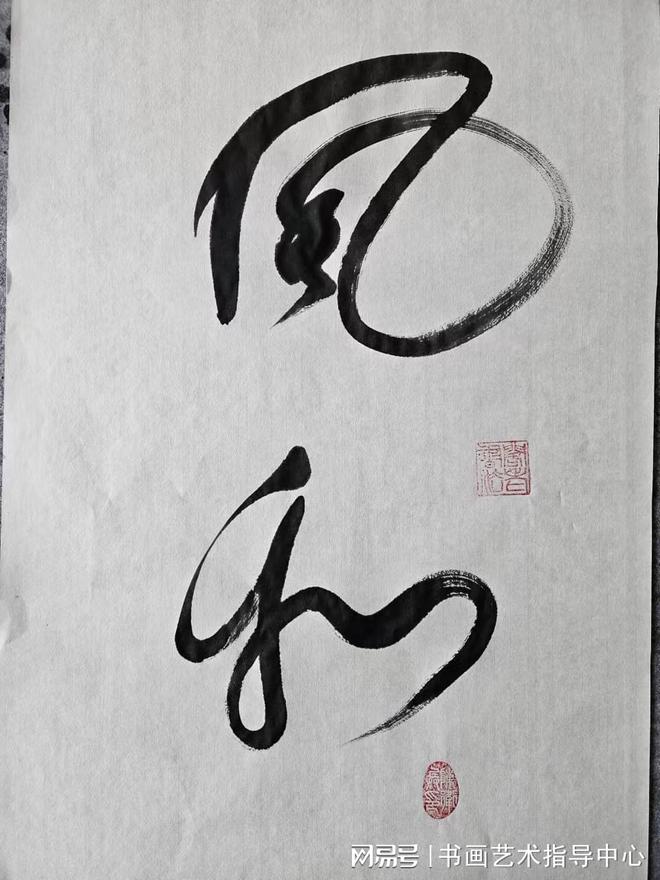 风
和
网易号 | 书画艺术指导中心